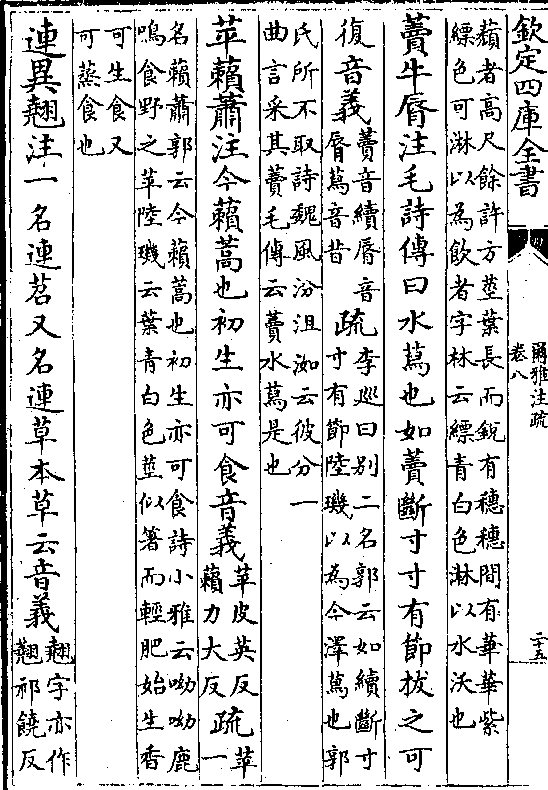 欽定四庫全書
爾雅注疏
卷八
二十五
蘱者高尺餘許方莖葉長而鋭有穗穗間有華華紫
縹色可淋以為飲者字林云縹青白色淋以水沃也
藚牛脣注毛詩傳曰水蕮也如藚斷寸寸有節拔之可
復音義
藚音續脣音
脣蕮音昔
疏
李廵曰别二名郭云如續斷寸
寸有節陸璣以為今澤蕮也郭
氏所不取詩魏風汾沮洳云彼汾一
曲言采其藚毛傳云藚水蕮是也
苹藾蕭注今藾蒿也初生亦可食音義
苹皮英反
藾力大反
疏
苹一
名藾蕭郭云今藾蒿也初生亦可食詩小雅云呦呦鹿
鳴食野之苹陸璣云葉青白色莖似箸而輕肥始生香
可生食又
可蒸食也
連異翹注一名連苕又名連草本草云音義
翹字亦作
翹祁饒反